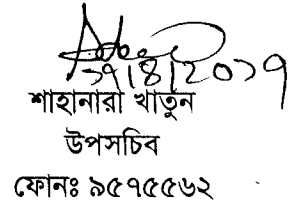 ২৭/৪/২০১৭
শাহানারা খাতুন
উপসচিব
ফোনঃ ৯৫৭৫৫৬২